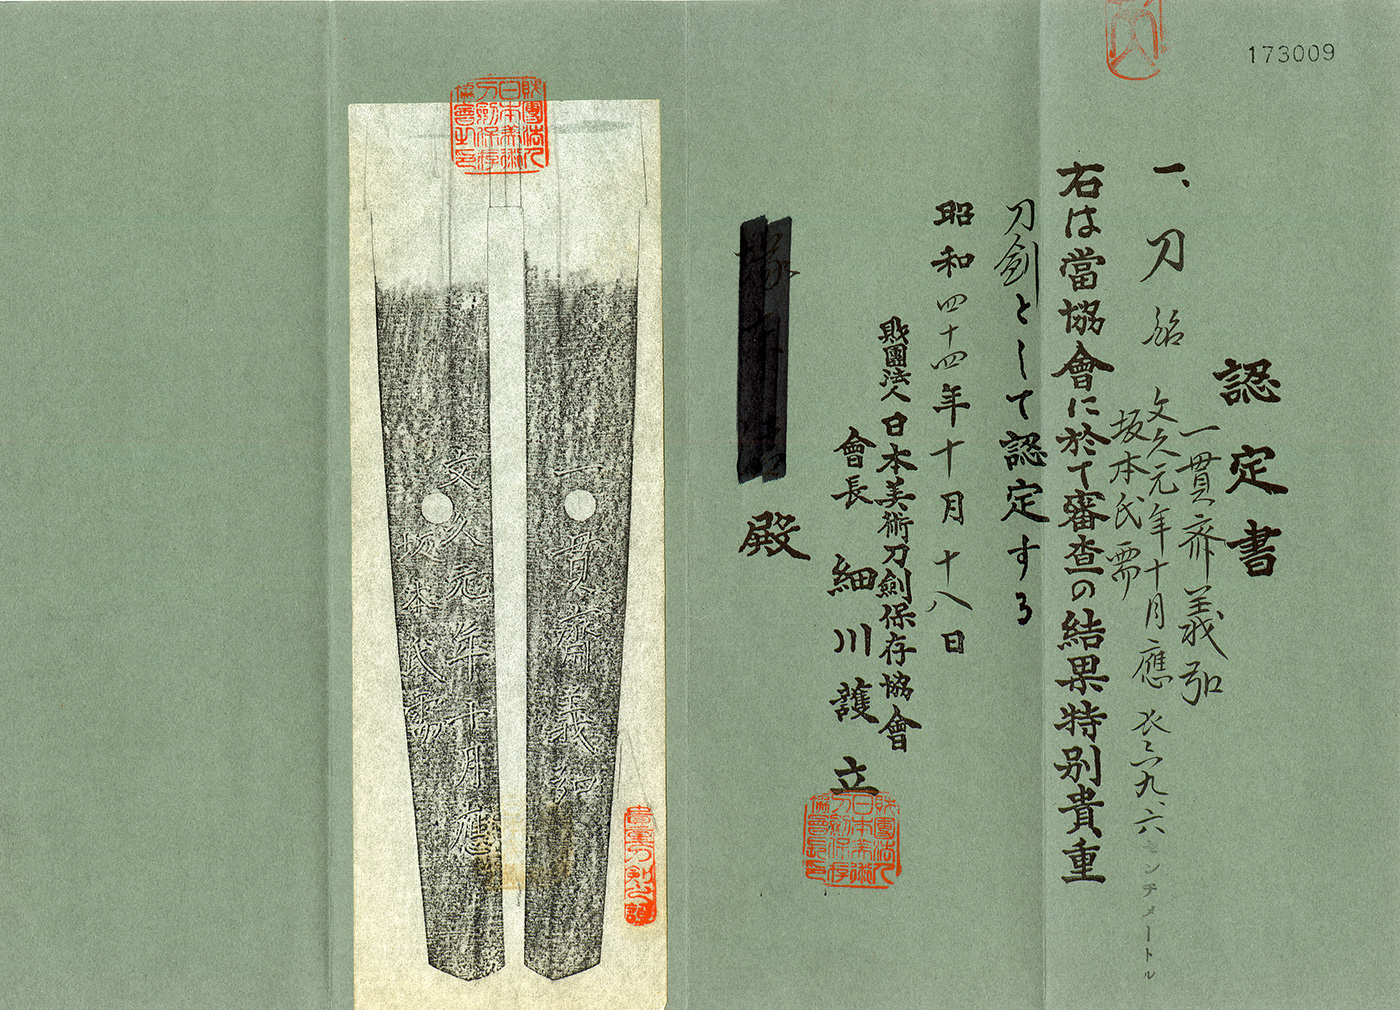 173009
認定書
一、刀 銘 一貫斎義弘
文久元年十月應
坂本氏需
長さ六九、六センチメートル
右は當協會に於て審査の結果特別貴重
刀劍として認定する
昭和四十四年十月十八日
財團法人日本美術刀劍保存協會
會長 細川護立
殿
財團法人日本美術刀劍保存協會長印
財團法人日本美術刀劍保存協會之印
一貫齋義弘
文久元年十月應
坂本氏需
貴重刀剣之證